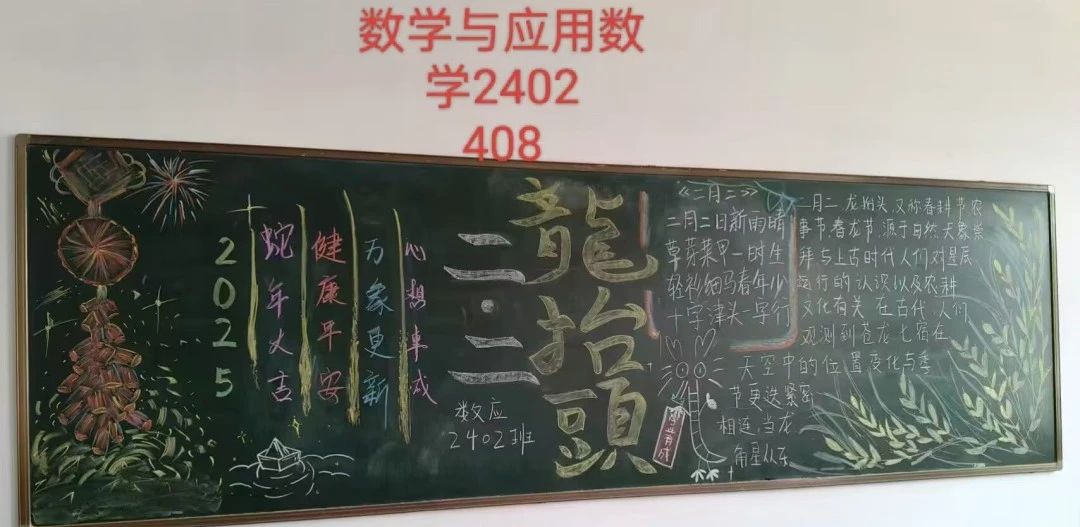 数学与应用数
学2402
408
2025
蛇年大吉
健康平安
万象更新
心想事成
二·二
龍抬頭
数应
2402班
《二月二》
二月二日新雨晴
草芽菜甲一时生
轻衫细马春年少
十字津头一字行
二月二龙抬头,又称春耕节农
事节春龙节,源于自然天象崇
拜与上古时代人们对星辰
运行的认识以及农耕
文化有关 在古代 人们
观测到苍龙七宿在
天空中的位置变化与季
节更迭紧密
相连,当龙
角星从东